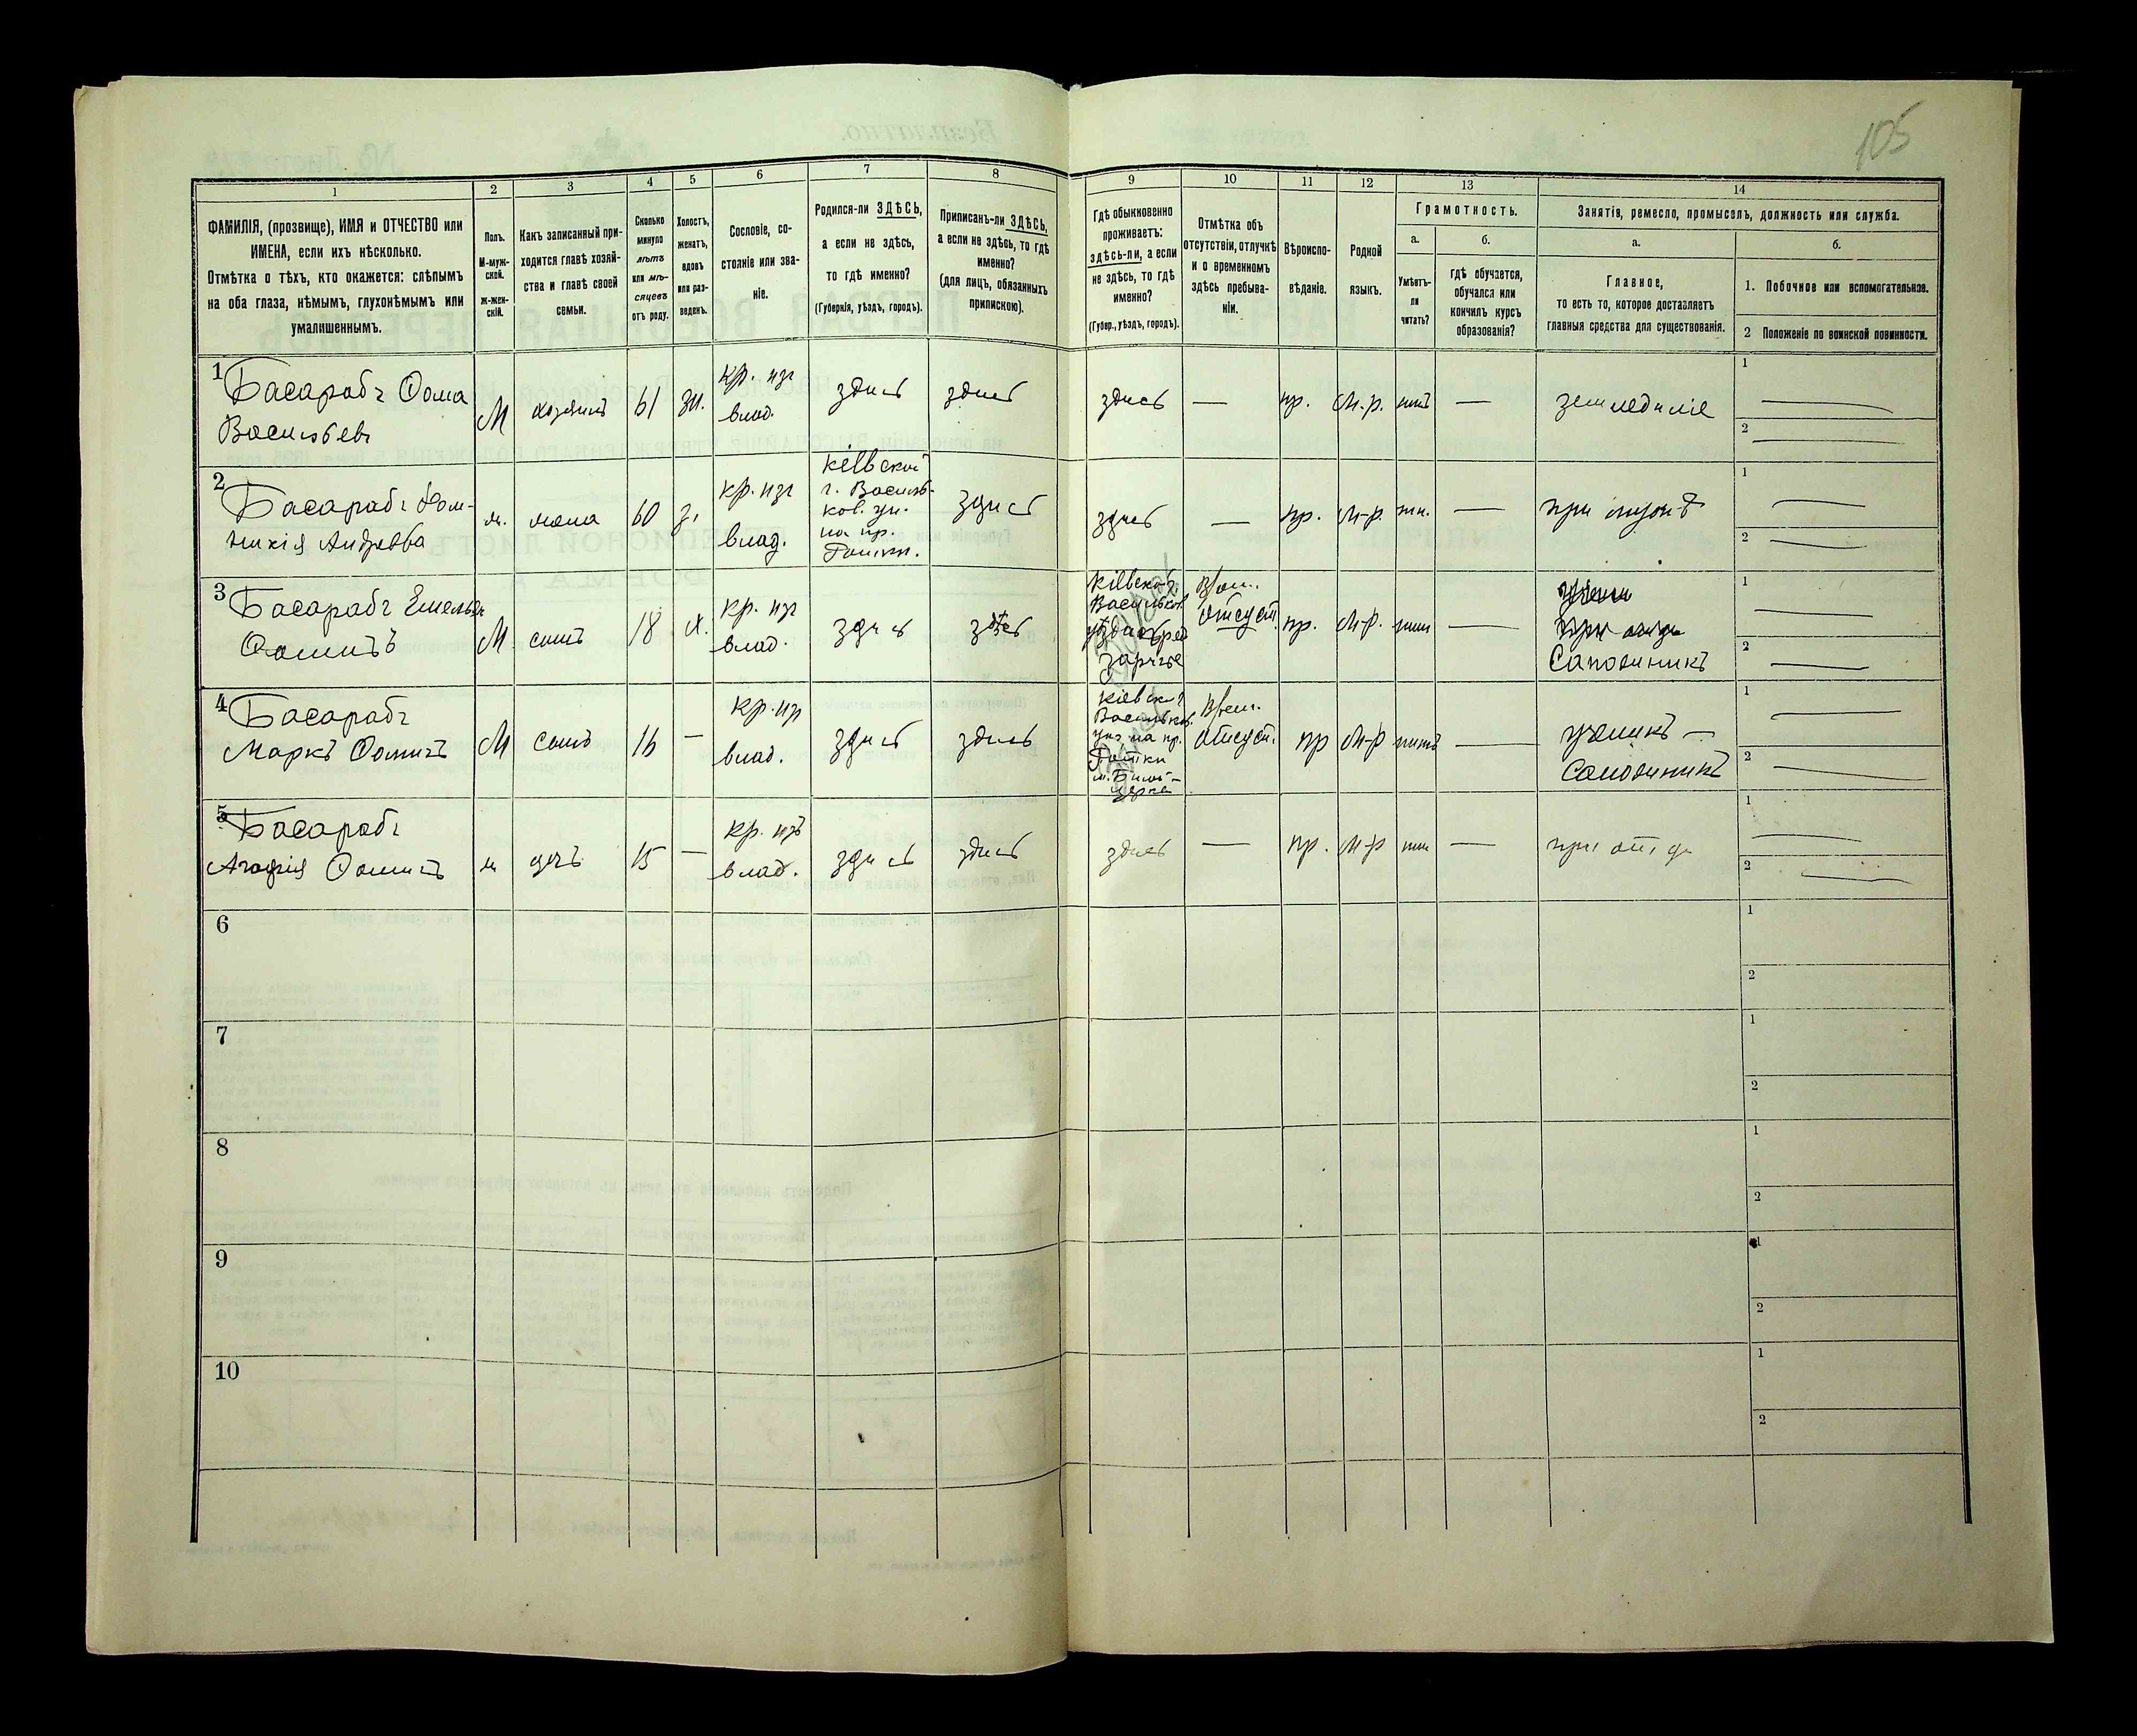 105
1
2
3
4
5
6
7
8
9
10
11
12
13
14
ФАМИЛІЯ, (прозвище), ИМЯ и ОТЧЕСТВО или
ИМЕНА, если ихъ нѣсколько.
Отмѣтка о тѣхъ, кто окажется: слѣпымъ
на оба глаза, нѣмымъ, глухонѣмымъ или
умалишеннымъ.
Полъ.
М-муж-
ской.
ж-жен-
скій.
Какъ записанный при-
ходится главѣ хозяй-
ства и главѣ своей
семьи.
Сколько
минуло
лѣтъ
или мѣ-
сяцевъ
отъ роду.
Холостъ,
женатъ,
вдовъ
или раз-
веденъ.
Сословіе, со-
стояніе или зва-
ніе.
Родился-ли ЗДѢСЬ,
а если не здѣсь,
то гдѣ именно?
(Губернія, уѣздъ, городъ).
Приписанъ-ли ЗДѢСЬ,
а если не здѣсь, то гдѣ
именно?
(для лицъ, обязанныхъ
припискою).
Гдѣ обыкновенно
проживаетъ:
здѣсь-ли, а если
не здѣсь, то гдѣ
именно?
(Губер., уѣздъ, городъ).
Отмѣтка объ
отсутствіи, отлучкѣ
и о временномъ
здѣсь пребыва-
ніи.
Вѣроиспо-
вѣданіе.
Родной
языкъ.
Грамотность.
а.
Умѣетъ-
ли
читать?
б.
гдѣ обучается,
обучался или
кончилъ курсъ
образованія?
Занятія, ремесло, промыселъ, должность или служба.
а.
Главное,
то есть то, которое доставляетъ
главныя средства для существованія.
б.
1. Побочное или вспомогательное.
2 Положеніе по воинской повинности.
1
Басарабъ Ѳома
Васильевъ
М
хозяинъ
61
жн.
кр. изъ
влад.
здись
здись
здись
—
пр.
М.р.
нитъ
—
земледиліе
1
2
2
Басарабъ Дом-
никія Андреева
ж.
жена
60
з.
кр. изъ
влад.
Кіевской
г. Василь-
ков. уи.
на пр.
здись
здись
—
пр.
М-р.
—
при
1
2
3
Басарабъ Емельян
Ѳоминъ
М
сынъ
18
х.
кр. изъ
влад.
здись
здѣсь
Кіевской г.
Васильков.
Врем.
отсуст.
пр.
М-р.
—
при отци
Сапожникъ
1
2
4
Басарабъ
Маркъ Ѳоминъ
М
сынъ
16
—
кр. изъ
влад.
здись
здись
Кіевск. г
Васильков.
на пр.
м. Билой-
Церкв
Врем.
отсуст.
пр
М-р
нитъ
—
ученикъ —
Сапожникъ
1
2
5
Басарабъ
Агафія Ѳоминъ
ж
дочь
15
—
кр. изъ
влад.
здись
здись
здись
—
пр.
М-р
—
при отци
1
2
6
1
2
7
1
2
8
1
2
9
1
2
10
1
2